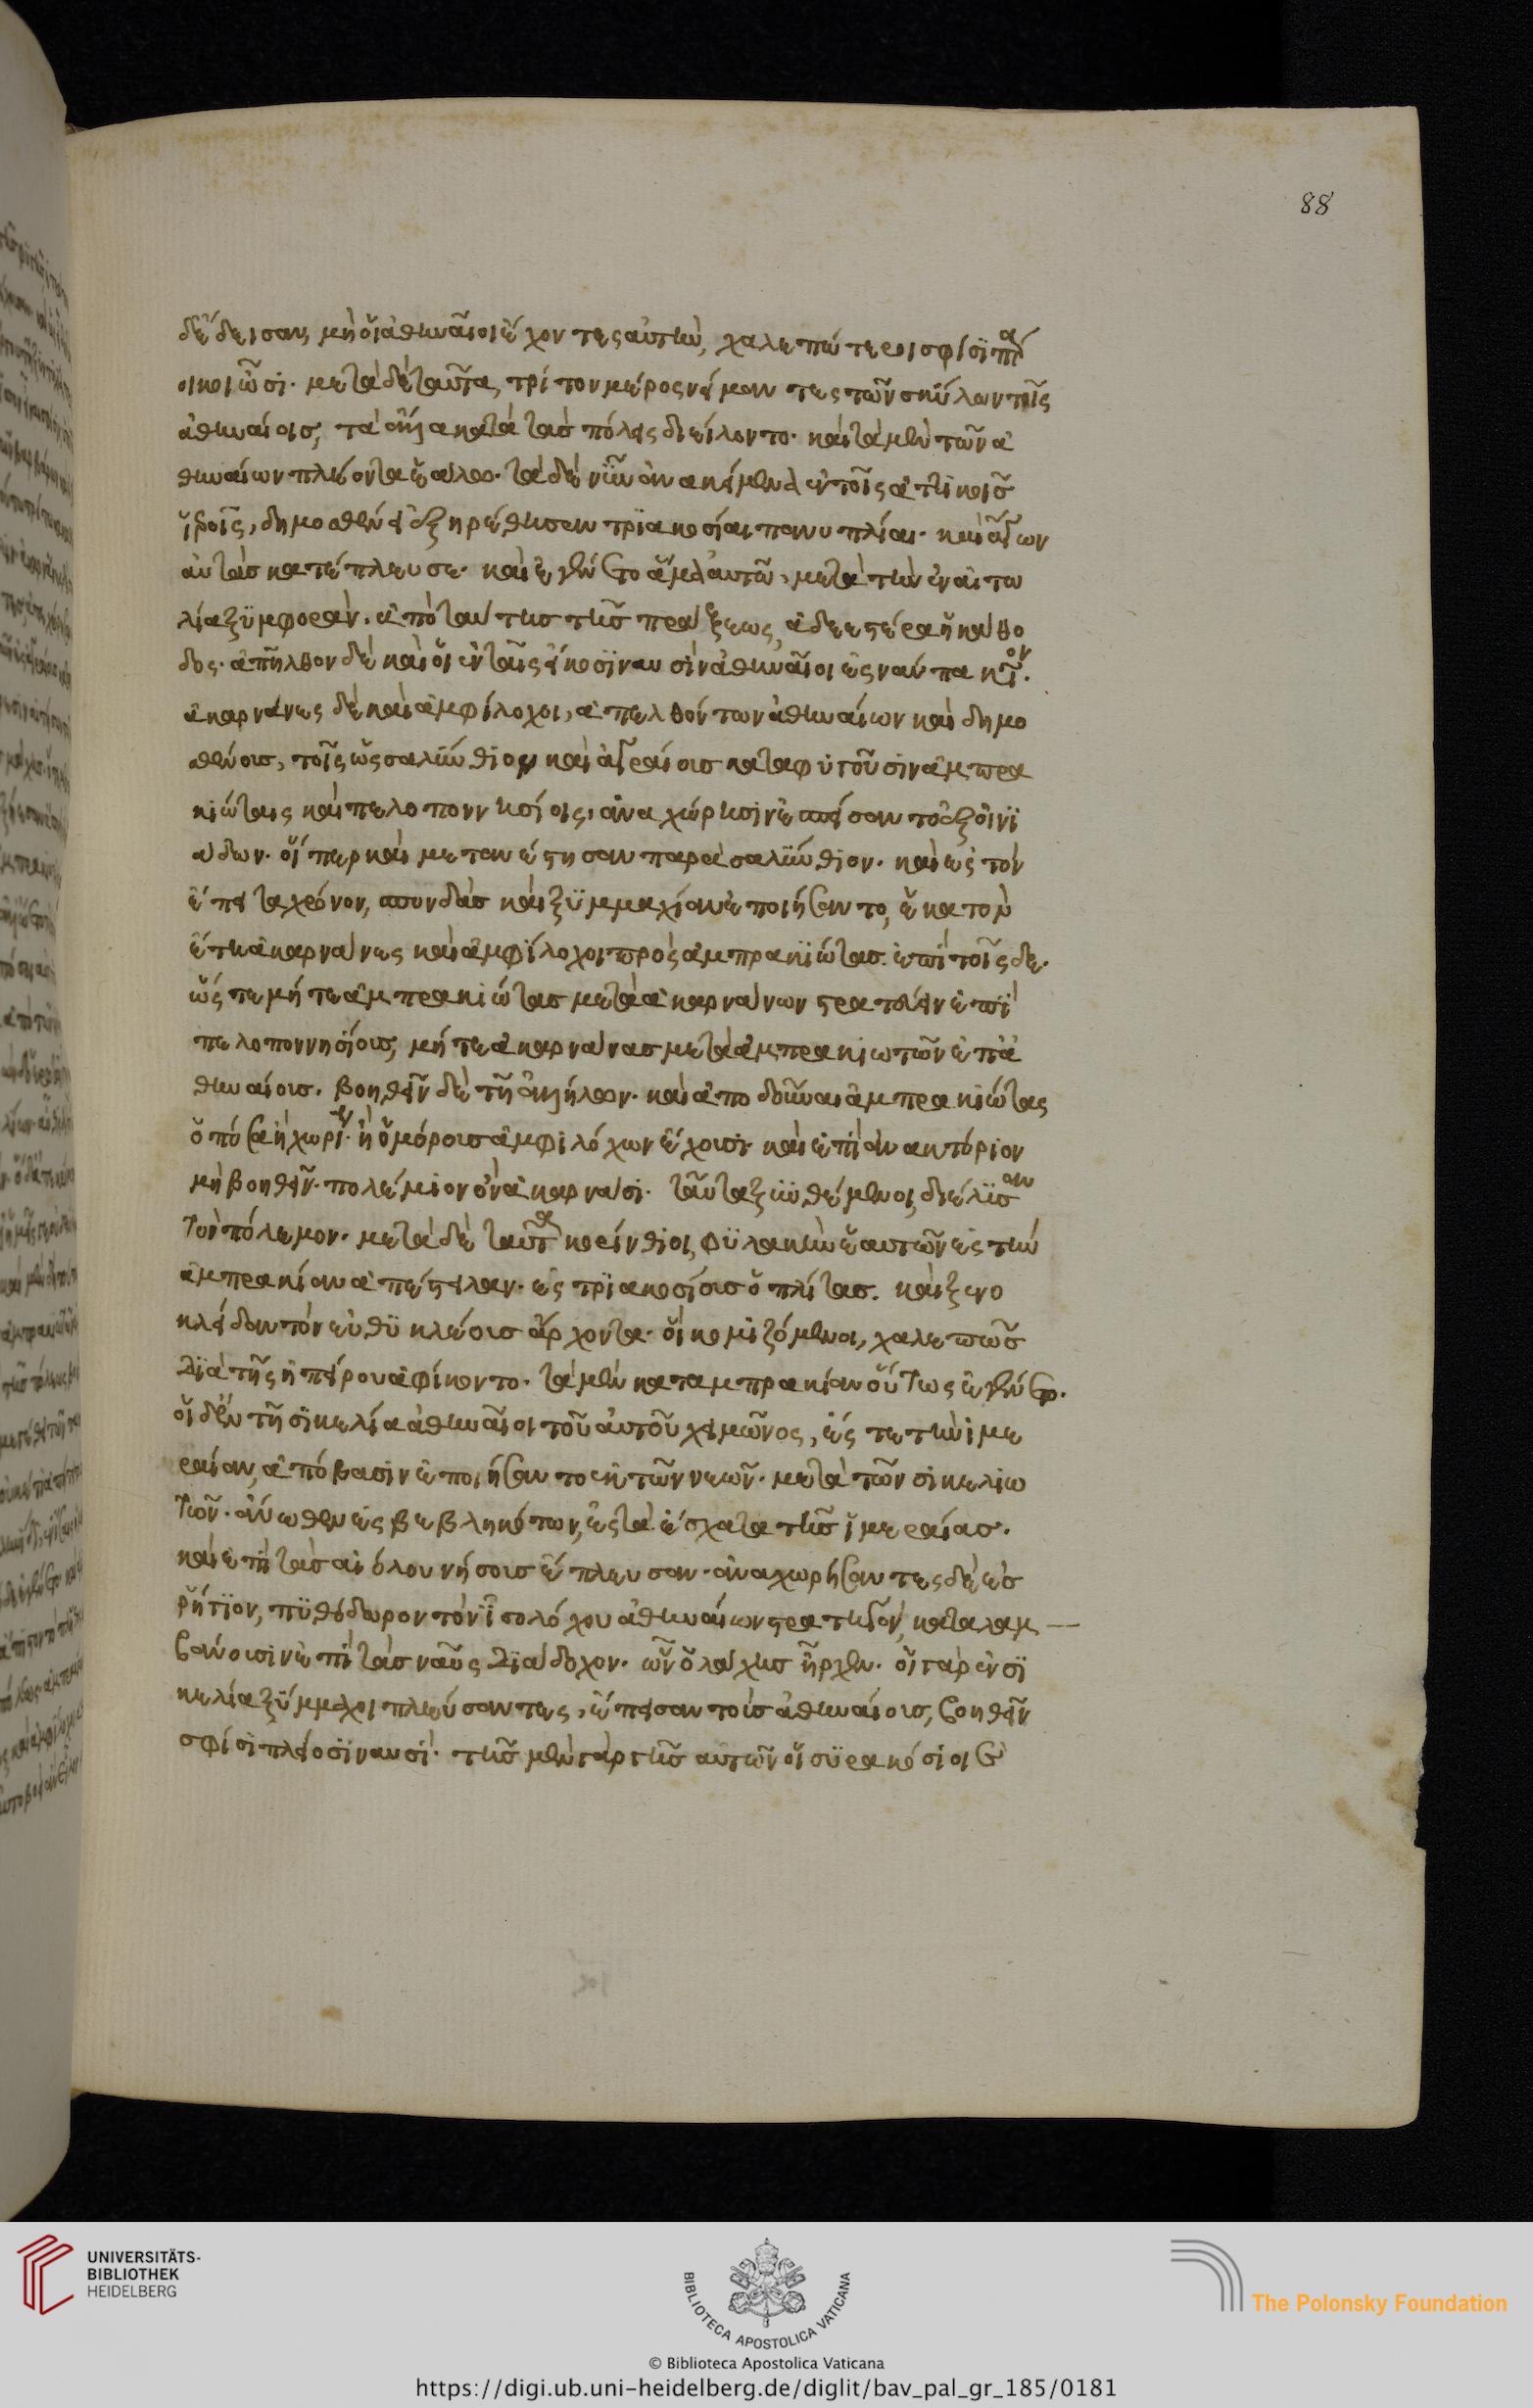 88
δέδεισαν, μὴ οἱ ἀθηναῖοι ἔχοντες αὐτὴν, χαλεπώτεροι σφίσι πάρ
οικοι ὦσι. μετὰ δὲ ταῦτα, τρίτον μέρος νείμαντες τῶν σκύλων τοῖς
ἀθηναίοις, τὰ ἄλλα κατὰ τὰς πόλεις διείλοντο. καὶ τὰ μὲν τῶν ἀ
θηναίων πλέοντα ἑάλω. τὰ δὲ νῦν ἀνακείμενα ἐν τοῖς ἀττικοῖς
ἱεροῖς, δημοσθένει ἐξηρέθησαν τριακοσίαι πανοπλίαι. καὶ ἄγων
αὐτὰς κατέπλευσε. καὶ ἐγένετο ἅμα αὐτῶ, μετὰ τὴν ἐν αἰτω
λία ξυμφοράν. ἀπὸ ταύτης τῆς πράξεως, ἀδεεστέρα ἡ κάθο
δος. ἀπῆλθον δὲ καὶ οἱ ἐν ταῖς εἴκοσι ναυσὶν ἀθηναῖοι ἐς ναύπακτον.
ἀκαρνᾶνες δὲ καὶ ἀμφίλοχοι, ἀπελθόντων ἀθηναίων καὶ δημο
σθένους, τοῖς ὡς σαλύνθιον καὶ ἀγραίους καταφυγοῦσιν ἀμπρα
κιώταις καὶ πελοποννησίοις, ἀναχώρησιν ἐσπείσαντο ἐξ οἰνι
αδων. οἵπερ καὶ μετανέστησαν παρὰ σαλύνθιον. καὶ ἐς τὸν
ἔπειτα χρόνον, σπονδὰς καὶ ξυμμαχίαν ἐποιήσαντο, ἑκατὸν
ἔτη ἀκαρνᾶνες καὶ ἀμφίλοχοι πρὸς ἀμπρακιώτας. ἐπὶ τοῖς δε.
ὥστε μήτε ἀμπρακιώτας μετὰ ἀκαρνάνων στρατεύειν ἐπὶ
πελοποννησίους, μήτε ἀκαρνᾶνας μετὰ ἀμπρακιωτῶν ἐπ' ἀ
θηναίους. βοηθεῖν δὲ τῆ ἀλλήλων. καὶ ἀποδοῦναι ἀμπρακιώτας
ὁπόσα ἢ χωρία ἢ ὁμόρους ἀμφιλόχων ἔχουσι. καὶ ἐπὶ ἀνακτόριον
μὴ βοηθεῖν. πολέμιον ὂν ἀκαρνᾶσι. ταῦτα ξυνθέμενοι, διέλυσαν
τὸν πόλεμον. μετὰ δὲ ταῦτα κορίνθιοι, φυλακὴν ἑαυτῶν ἐς τὴν
ἀμπρακίαν ἀπέστειλαν. ἐς τριακοσίους ὁπλίτας. καὶ ξενο
κλείδαν τὸν εὐθυκλέους ἄρχοντα. οἳ κομιζόμενοι, χαλεπῶς
διὰ τῆς ἠπείρου ἀφίκοντο. τὰ μὲν κατ' αμπρακίαν οὕτως ἐγένετο.
οἱ δ' ἐν τῆ σικελία ἀθηναῖοι τοῦ αὐτοῦ χειμῶνος, ἔς τε τὴν ἱμε
ραίαν, ἀπόβασιν ἐποιήσαντο ἐκ τῶν νεῶν. μετὰ τῶν σικελιω
τῶν. ἄνωθεν ἐσβεβληκότων, ἐς τὰ ἔσχατα τῆς ἱμεραίας.
καὶ ἐπὶ τὰς αἰόλου νήσους ἔπλευσαν. ἀναχωρήσαντες δὲ ἐς
ῥήγιον, πυθόδωρον τὸν ἰσολόχου ἀθηναίων στρατηγὸν, καταλαμ
βάνουσιν ἐπὶ τὰς ναῦς διάδοχον. ὧν ὁ λάχης ἦρχεν. οἱ γὰρ ἐν σι
κελία ξύμμαχοι πλεύσαντες, ἔπεισαν τοὺς ἀθηναίους, βοηθεῖν
σφίσι πλείοσι ναυσί. τῆς μὲν γὰρ γῆς αὐτῶν οἱ συρακόσιοι ἐ
UNIVERSITÄTS-
BIBLIOTHEK
HEIDELBERG
BIBLIOTECA APOSTOLICA VATICANA
The Polonsky Foundation
© Biblioteca Apostolica Vaticana
https://digi.ub.uni-heidelberg.de/diglit/bav_pal_gr_185/0181